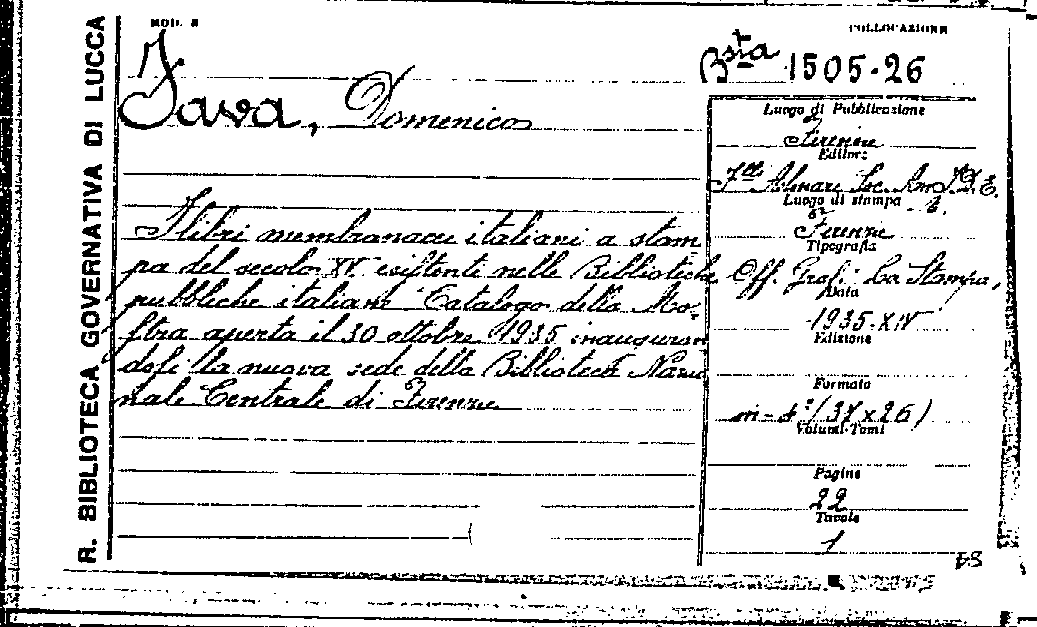 R. BIBLIOTECA GOVERNATIVA DI LUCCA
MOD. B
COLLOCAZIONE
Bsta 1505-26
Fava, Domenico
I libri membranacei italiani a stam
pa del secolo XV esistenti nelle Biblioteche
pubbliche italiane Catalogo della Mo-
stra aperta il 30 ottobre 1935 inauguran
dosi la nuova sede della Biblioteca Nazio
nale Centrale di Firenze
Luogo di Pubblicazione
Firenze
Editore
F.lli Alinari Soc. An. I.D.E.A.
Luogo di stampa
Firenze
Tipografia
Off. Graf. La Stampa
Data
1935-XIV
Edizione
Formato
in-4° (37 x 26)
Volumi-Tomi
Pagine
22
Tavole
1